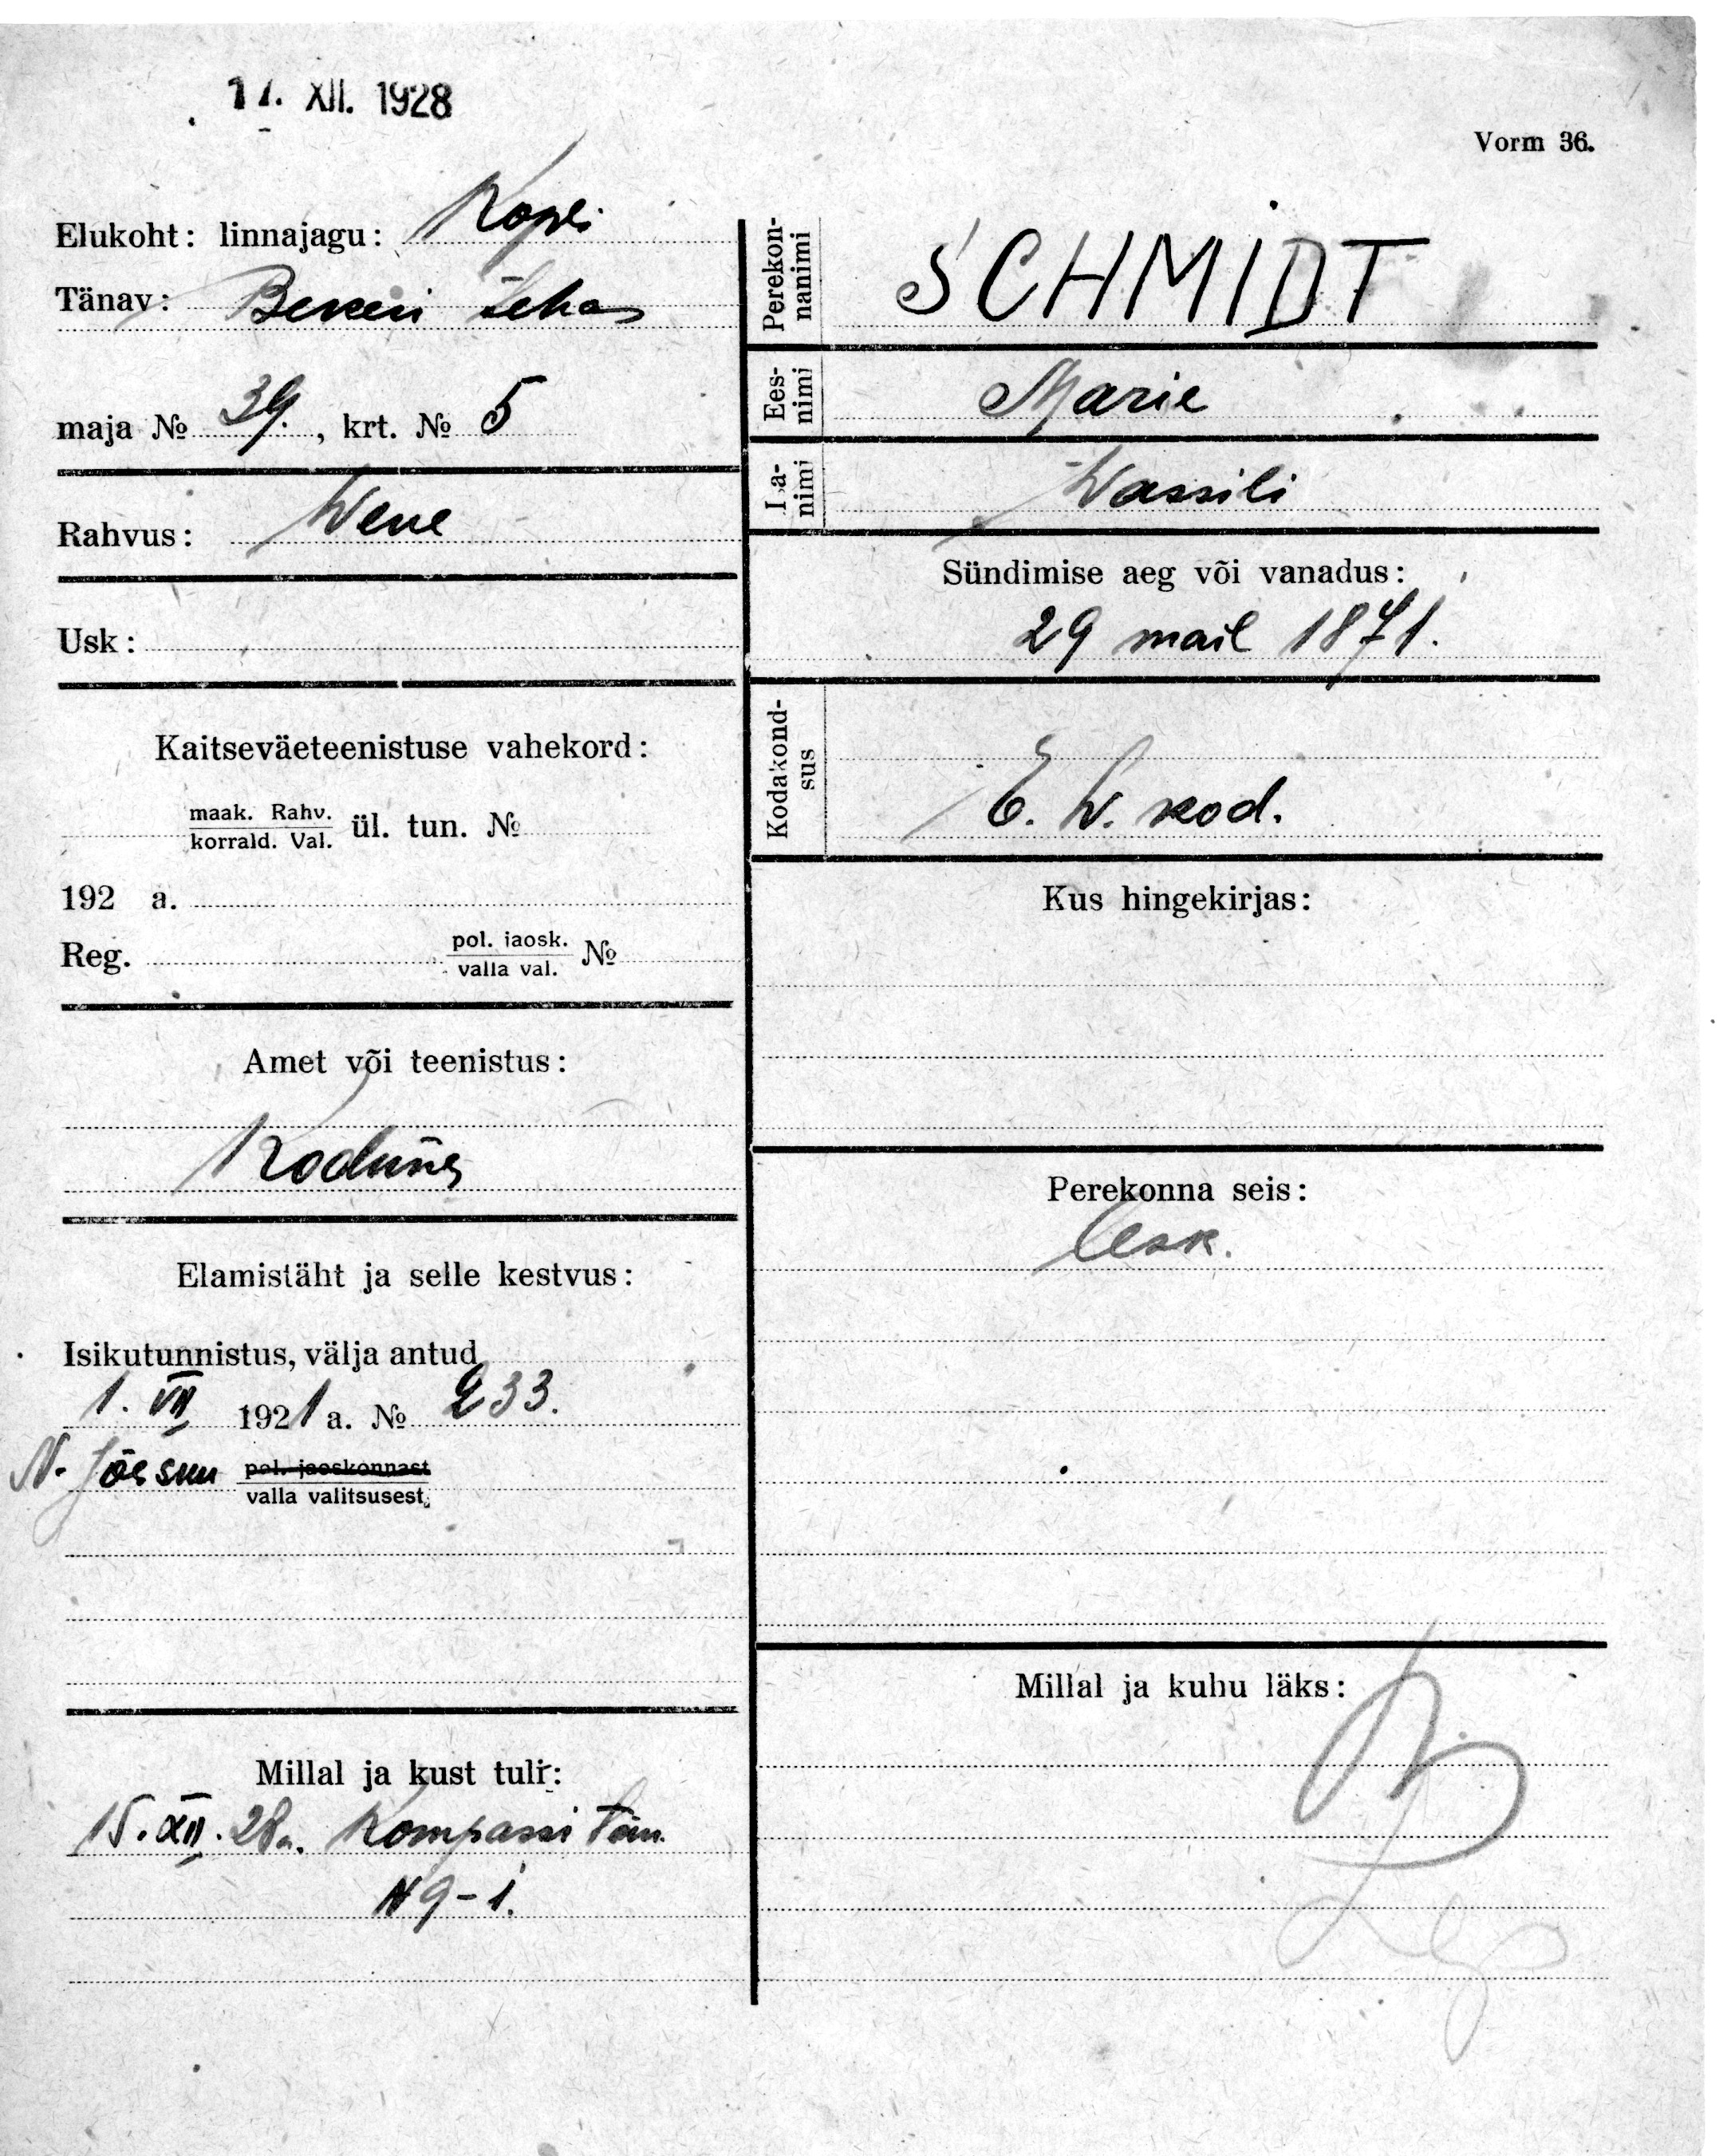 17. XII. 1928
Vorm 36.
Elukoht: linnajagu: Kopli
Tänav: Bekeri tehas
maja № 39., krt. № 5
Rahvus: Wene
Usk:
Kaitseväeteenistuse vahekord:
maak. Rahv.
korrald. Val. ül. tun. №
192 a.
Reg. pol. jaosk.
valla val. №
Amet või teenistus:
Kodune
Elamistäht ja selle kestvus:
Isikutunnistus, välja antud
1. VII 1921 a. № 233.
N. Jõesuu pol. jaoskonnast
valla valitsusest.
Millal ja kust tuli:
15. XII. 28 a. Kompassi tän.
N 9-1.
Perekonnanimi
SCHMIDT
Eesnimi
Marie
Isanimi
Wassili
Sündimise aeg või vanadus:
29 mail 1871.
Kodakondsus
E. W. kod.
Kus hingekirjas:
Perekonna seis:
Lesk.
Millal ja kuhu läks: